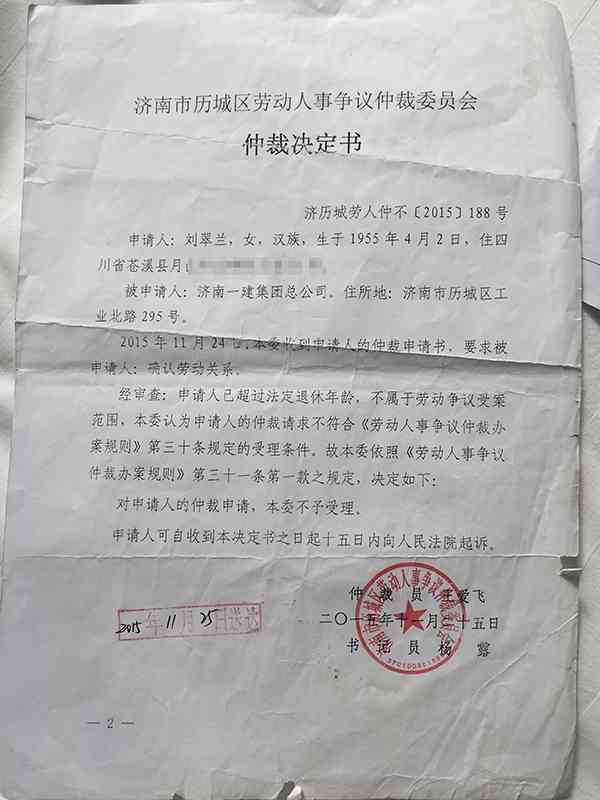 济南市历城区劳动人事争议仲裁委员会
仲裁决定书
济历城劳人仲不〔2015〕188号
申请人：刘翠兰，女，汉族，生于1955年4月2日，住四
川省苍溪县月
被申请人：济南一建集团总公司。住所地：济南市历城区工
业北路295号。
2015年11月24日,本委收到申请人的仲裁申请书，要求被
申请人：确认劳动关系。
经审查：申请人已超过法定退休年龄，不属于劳动争议受案
范围，本委认为申请人的仲裁请求不符合《劳动人事争议仲裁办
案规则》第三十条规定的受理条件。故本委依照《劳动人事争议
仲裁办案规则》第三十一条第一款之规定，决定如下：
对申请人的仲裁申请，本委不予受理。
申请人可自收到本决定书之日起十五日内向人民法院起诉。
仲裁员 王爱飞
二〇一五年十一月二十五日
书记员 杨露
济南市历城区劳动人事争议仲裁委员会
2015年11月25日送达
— 2 —